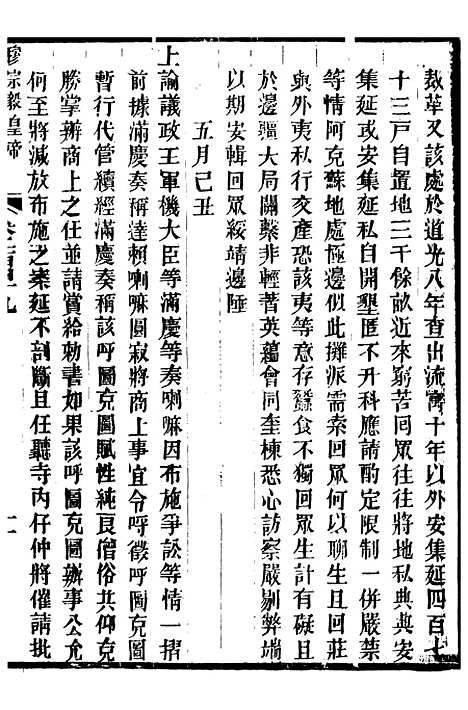 裁革又該處於道光八年查出流寓十年以外安集延四百七
十三戶自置地三千餘畝近來窮苦回眾往往將地私典與安
集延或安集延私自開墾匿不升科應請酌定限制一併嚴禁
等情阿克蘇地處極邊似此攤派需索回眾何以聊生且回莊
與外夷私行交產恐該夷等意存蠶食不獨回眾生計有礙且
於邊疆大局關繫非輕著英蘊會同奎棟悉心訪察嚴剔弊端
以期安輯回眾綏靖邊陲
五月己丑
上諭議政王軍機大臣等滿慶等奏喇嘛因布施爭訟等情一摺
前據滿慶奏稱達賴喇嘛圓寂將商上事宜令呼徵呼圖克圖
暫行代管續經滿慶奏稱該呼圖克圖賦性純良僧俗共仰克
勝掌辦商上之任並請賞給勅書如果該呼圖克圖辦事公允
何至將減放布施之案延不剖斷且任聽寺內仔仲將催請批
穆宗毅皇帝